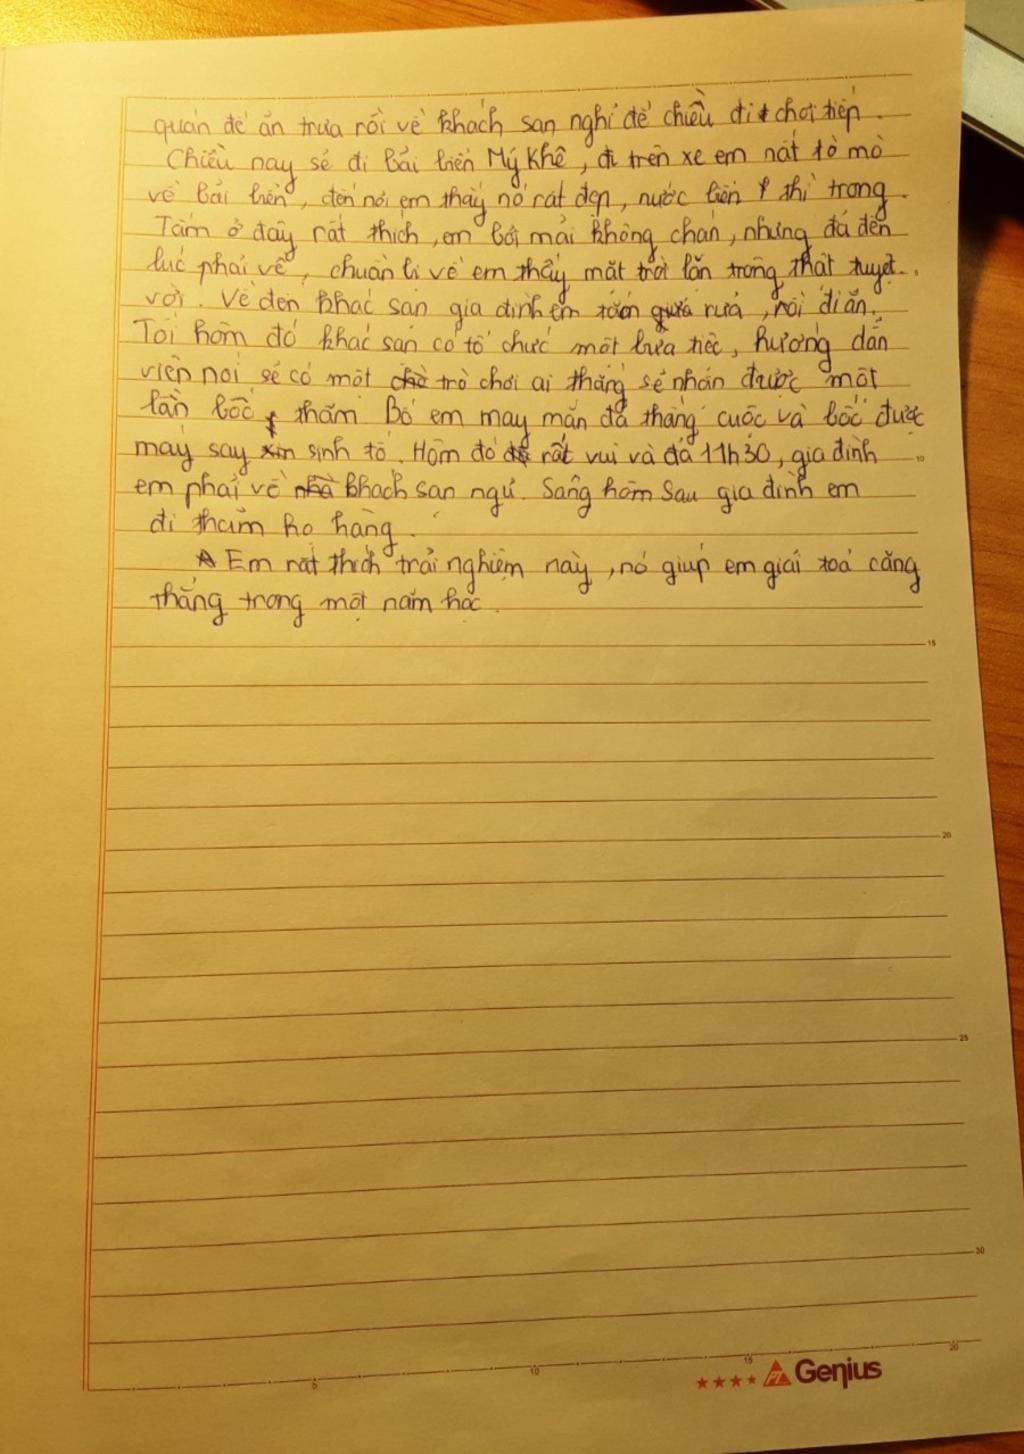 quán để ăn trưa rồi về khách sạn nghỉ để chiều đi chơi tiếp.
Chiều nay sẽ đi bãi biển Mỹ Khê, đi trên xe em nất tò mò
về bãi biển, đến nơi em thấy nó rất đẹp, nước biển thì trong.
Tắm ở đây rất thích, em bơi mãi không chán, nhưng đã đến
lúc phải về, chuẩn bị về em thấy mặt trời lặn trông thật tuyệt
vời. Về đến khác sạn gia đình em tắm rửa, rồi đi ăn.
Tối hôm đó khác sạn có tổ chức một bữa tiệc, hướng dẫn
viên nói sẽ có một trò chơi ai thắng sẽ nhận được một
lần bốc thăm. Bố em may mắn đã thắng cuộc và bốc được
máy say sinh tố. Hôm đó rất vui và đã 11h30, gia đình
em phải về khách sạn ngủ. Sáng hôm sau gia đình em
đi thăm họ hàng.
Em rất thích trải nghiệm này, nó giúp em giải toả căng
thẳng trong một năm học.
10
15
20
25
30
5 10 15 20
PT Genius